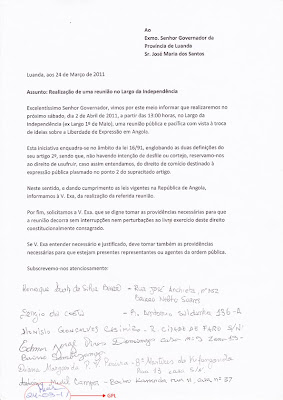 Ao
Exmo. Senhor Governador da
Província de Luanda
Sr. José Maria dos Santos
Luanda, aos 24 de Março de 2011
Assunto: Realização de uma reunião no Largo da Independência
Excelentíssimo Senhor Governador, vimos por este meio informar que realizaremos no
próximo sábado, dia 2 de Abril de 2011, a partir das 13:00 horas, no Largo da
Independência (ex Largo 1º de Maio), uma reunião pública e pacífica com vista à troca
de ideias sobre a Liberdade de Expressão em Angola.
Esta iniciativa enquadra-se no âmbito da lei 16/91, englobando as duas definições do
seu artigo 2º, sendo que, não havendo intenção de desfile ou cortejo, reservamo-nos
ao direito de usufruir, caso assim entendamos, do direito de comício destinado à
expressão pública plasmado no ponto 2 do supracitado artigo.
Neste sentido, e dando cumprimento as leis vigentes na República de Angola,
informamos à V. Exa. da realização da referida reunião.
Por fim, solicitamos à V. Exa. que se digne tomar as providências necessárias para que
a reunião decorra sem interrupções nem perturbações ao livre exercício deste direito
constitucionalmente consagrado.
Se V. Exa entender necessário e justificado, deve tomar também as providências
necessárias para que estejam presentes representantes ou agentes da ordem pública.
Subscrevemo-nos atenciosamente:
da Silva - Rua José Anchieta, nº
Bairro
Sérgio da - R. António Saldanha 196-A
Dionísio Gonçalves Casimiro - R. Cidade de Faro S/N
Domingo
Bairro
Diana
Rua 13 casa S/N
Campos - Bairro Rua 11, casa nº 37
GPL